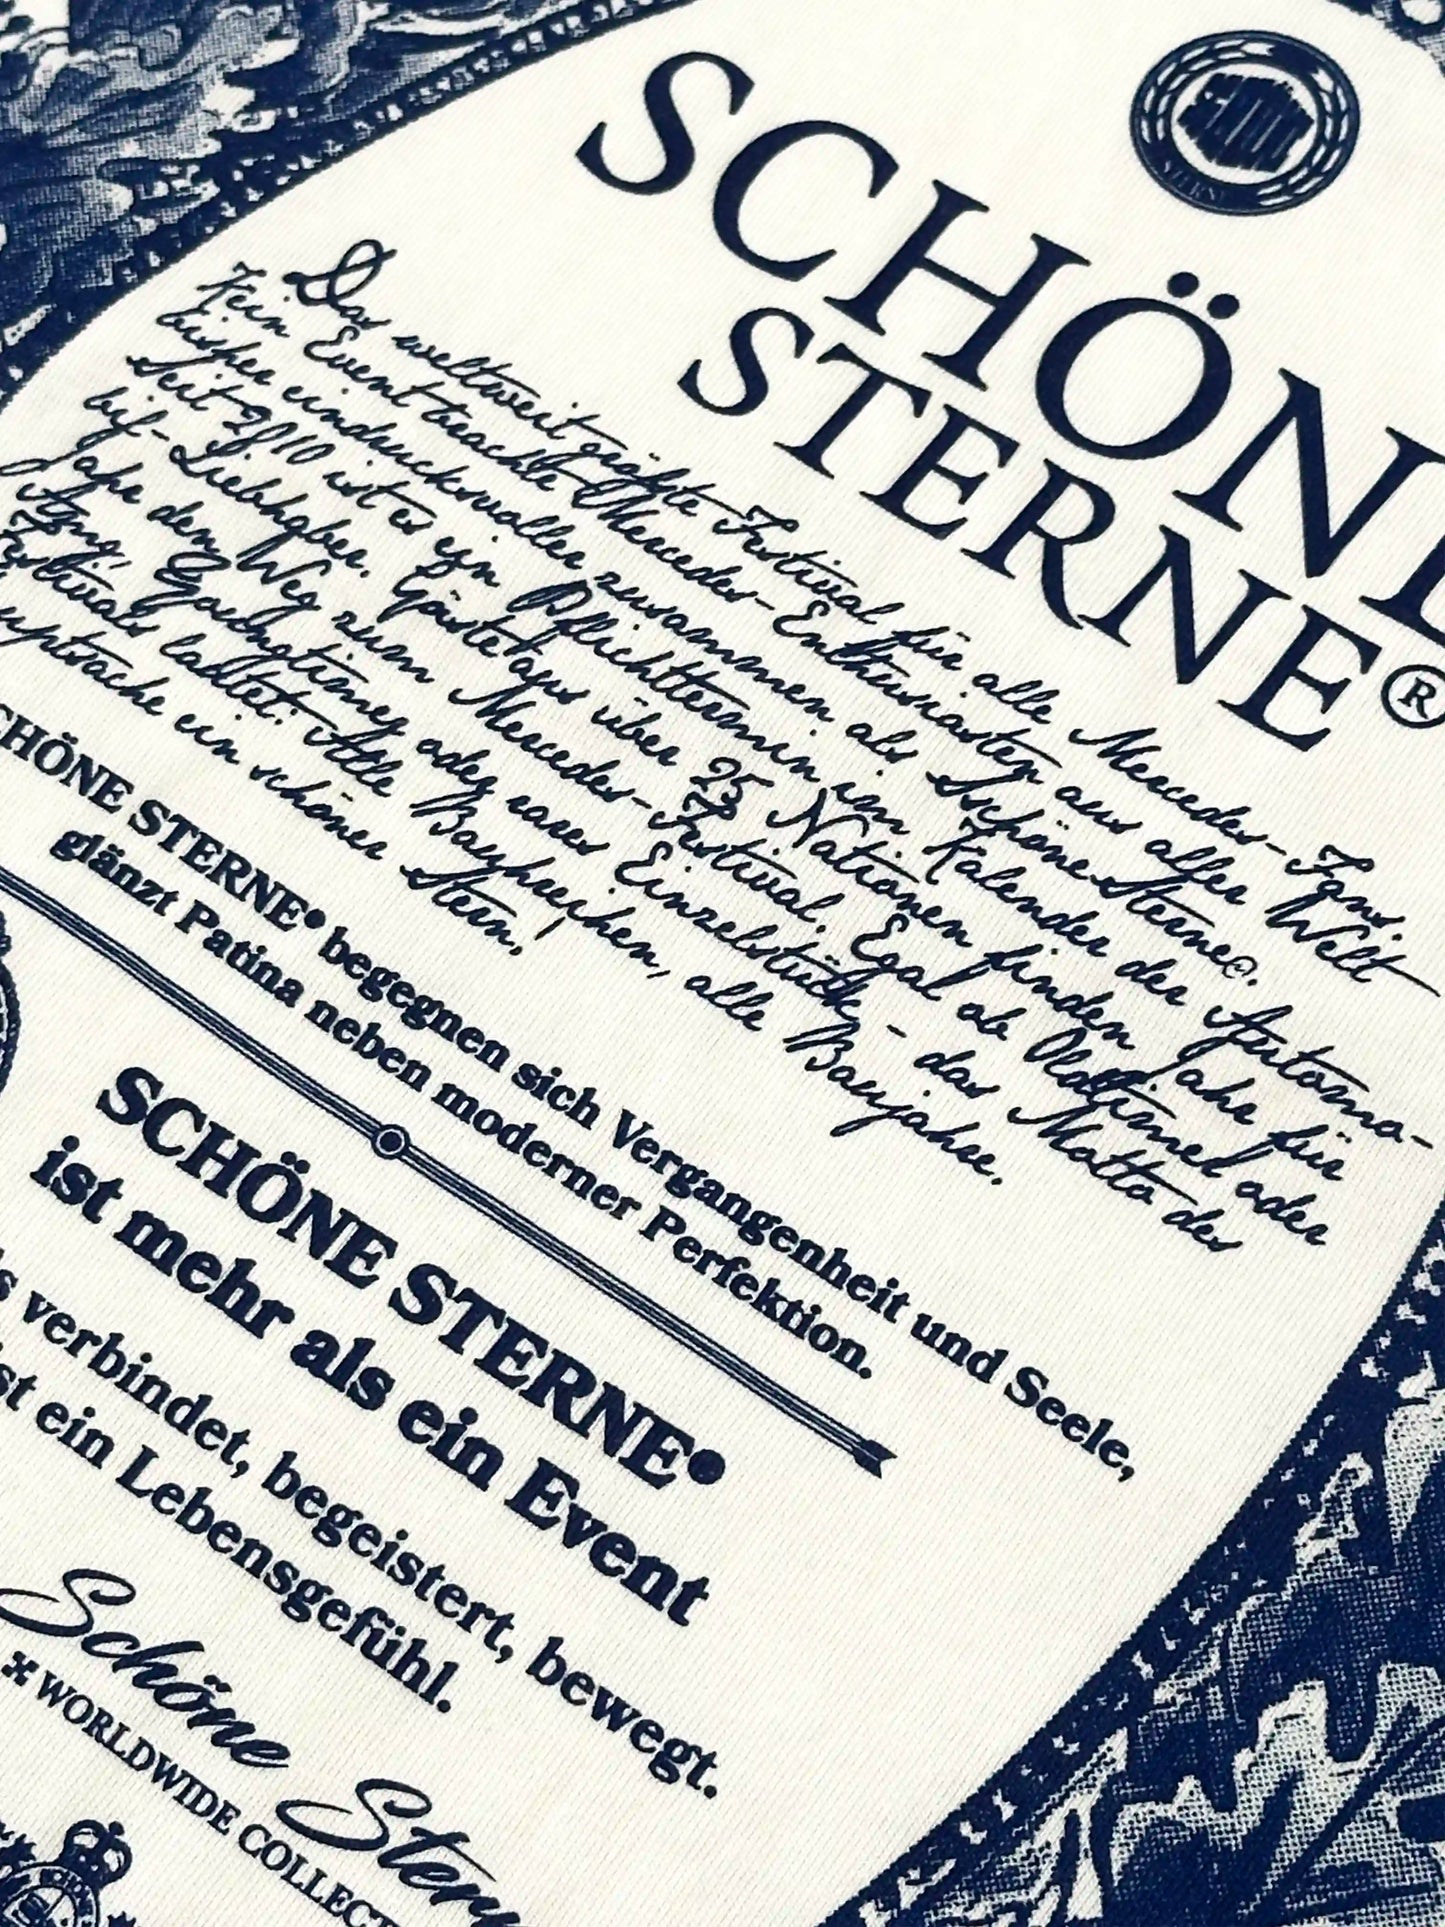 STERNE
SCHÖNE
STERNE®
Das weltweit größte Festival für alle Mercedes-Fans.
Kein Event brachte Mercedes-Enthusiasten aus aller Welt
bisher eindrucksvoller zusammen als Schöne Sterne®.
Seit 2010 ist es ein Pflichttermin im Kalender der Automo-
bil-Liebhaber. Gäste aus über 25 Nationen finden Jahr für
Jahr den Weg zum Mercedes-Festival. Egal ob Oldtimer oder
AMG, Youngtimer oder rares Einzelstück - das Motto des
Festivals lautet: Alle Baureihen, alle Baujahre.
uptsache ein schöner Stern!
CHÖNE STERNE® begegnen sich Vergangenheit und Seele,
glänzt Patina neben moderner Perfektion.
SCHÖNE STERNE®
ist mehr als ein Event
s verbindet, begeistert, bewegt.
st ein Lebensgefühl.
Schöne Stern
WORLDWIDE COLLECT